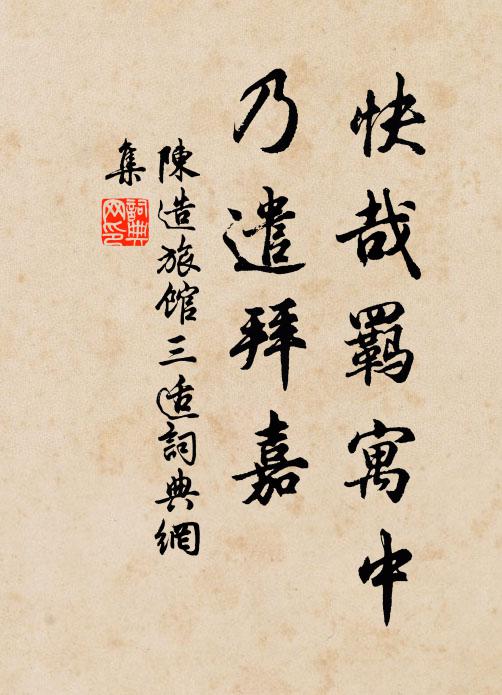 快哉羇寓中
乃遣拜嘉
陳造旅館三适詞典網
集
詞典網印